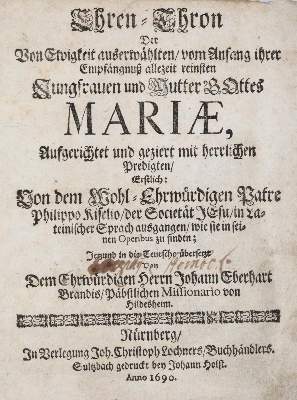 Ehren-Thron
Der
Von Ewigkeit auserwählten/ vom Anfang ihrer
Empfängnuß allezeit reinsten
Jungfrauen und Mutter GOttes
MARIÆ,
Aufgerichtet und geziert mit herrlichen
Predigten/
Erstlich:
Von dem Wohl-Ehrwürdigen Patre
Philippo Kiselio/ der Societät JEsu/ in La-
teinischer Sprach ausgangen/ wie sie in sei-
nen Operibus zu finden;
Jetzund in die Teutsche übersetzt
Von
Dem Ehrwürdigen Herrn Johann Eberhart
Brandis/ Päbstlichen Missionario von
Hildesheim.
Nürnberg/
In Verlegung Joh. Christoph Lochners/ Buchhändlers.
Sultzbach gedruckt bey Johann Holst.
Anno 1690.